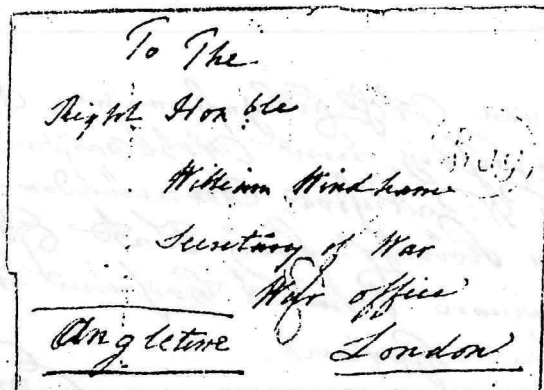 To The
Right Honble
William Windham
Secretary of War
War office
Angleterre London